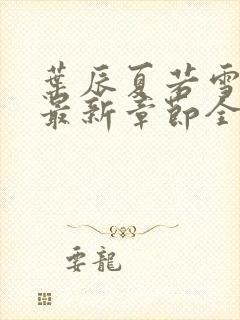 葉辰夏若雪
最新章節全
耍龍